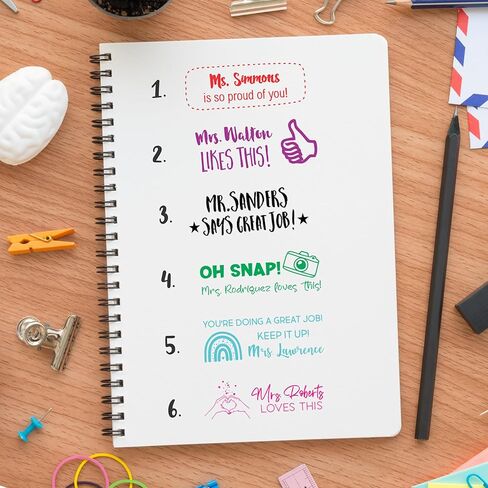 1.
Ms. Simmons
is so proud of you!
2.
Mrs. Walton
LIKES THIS!
3.
MR. SANDERS
★SAYS GREAT JOB!★
4.
OH SNAP!
Mrs. Rodriguez loves This!
5.
YOU'RE DOING A GREAT JOB!
KEEP IT UP!
Mrs. Lawrence
6.
Mrs Roberts
LOVES THIS